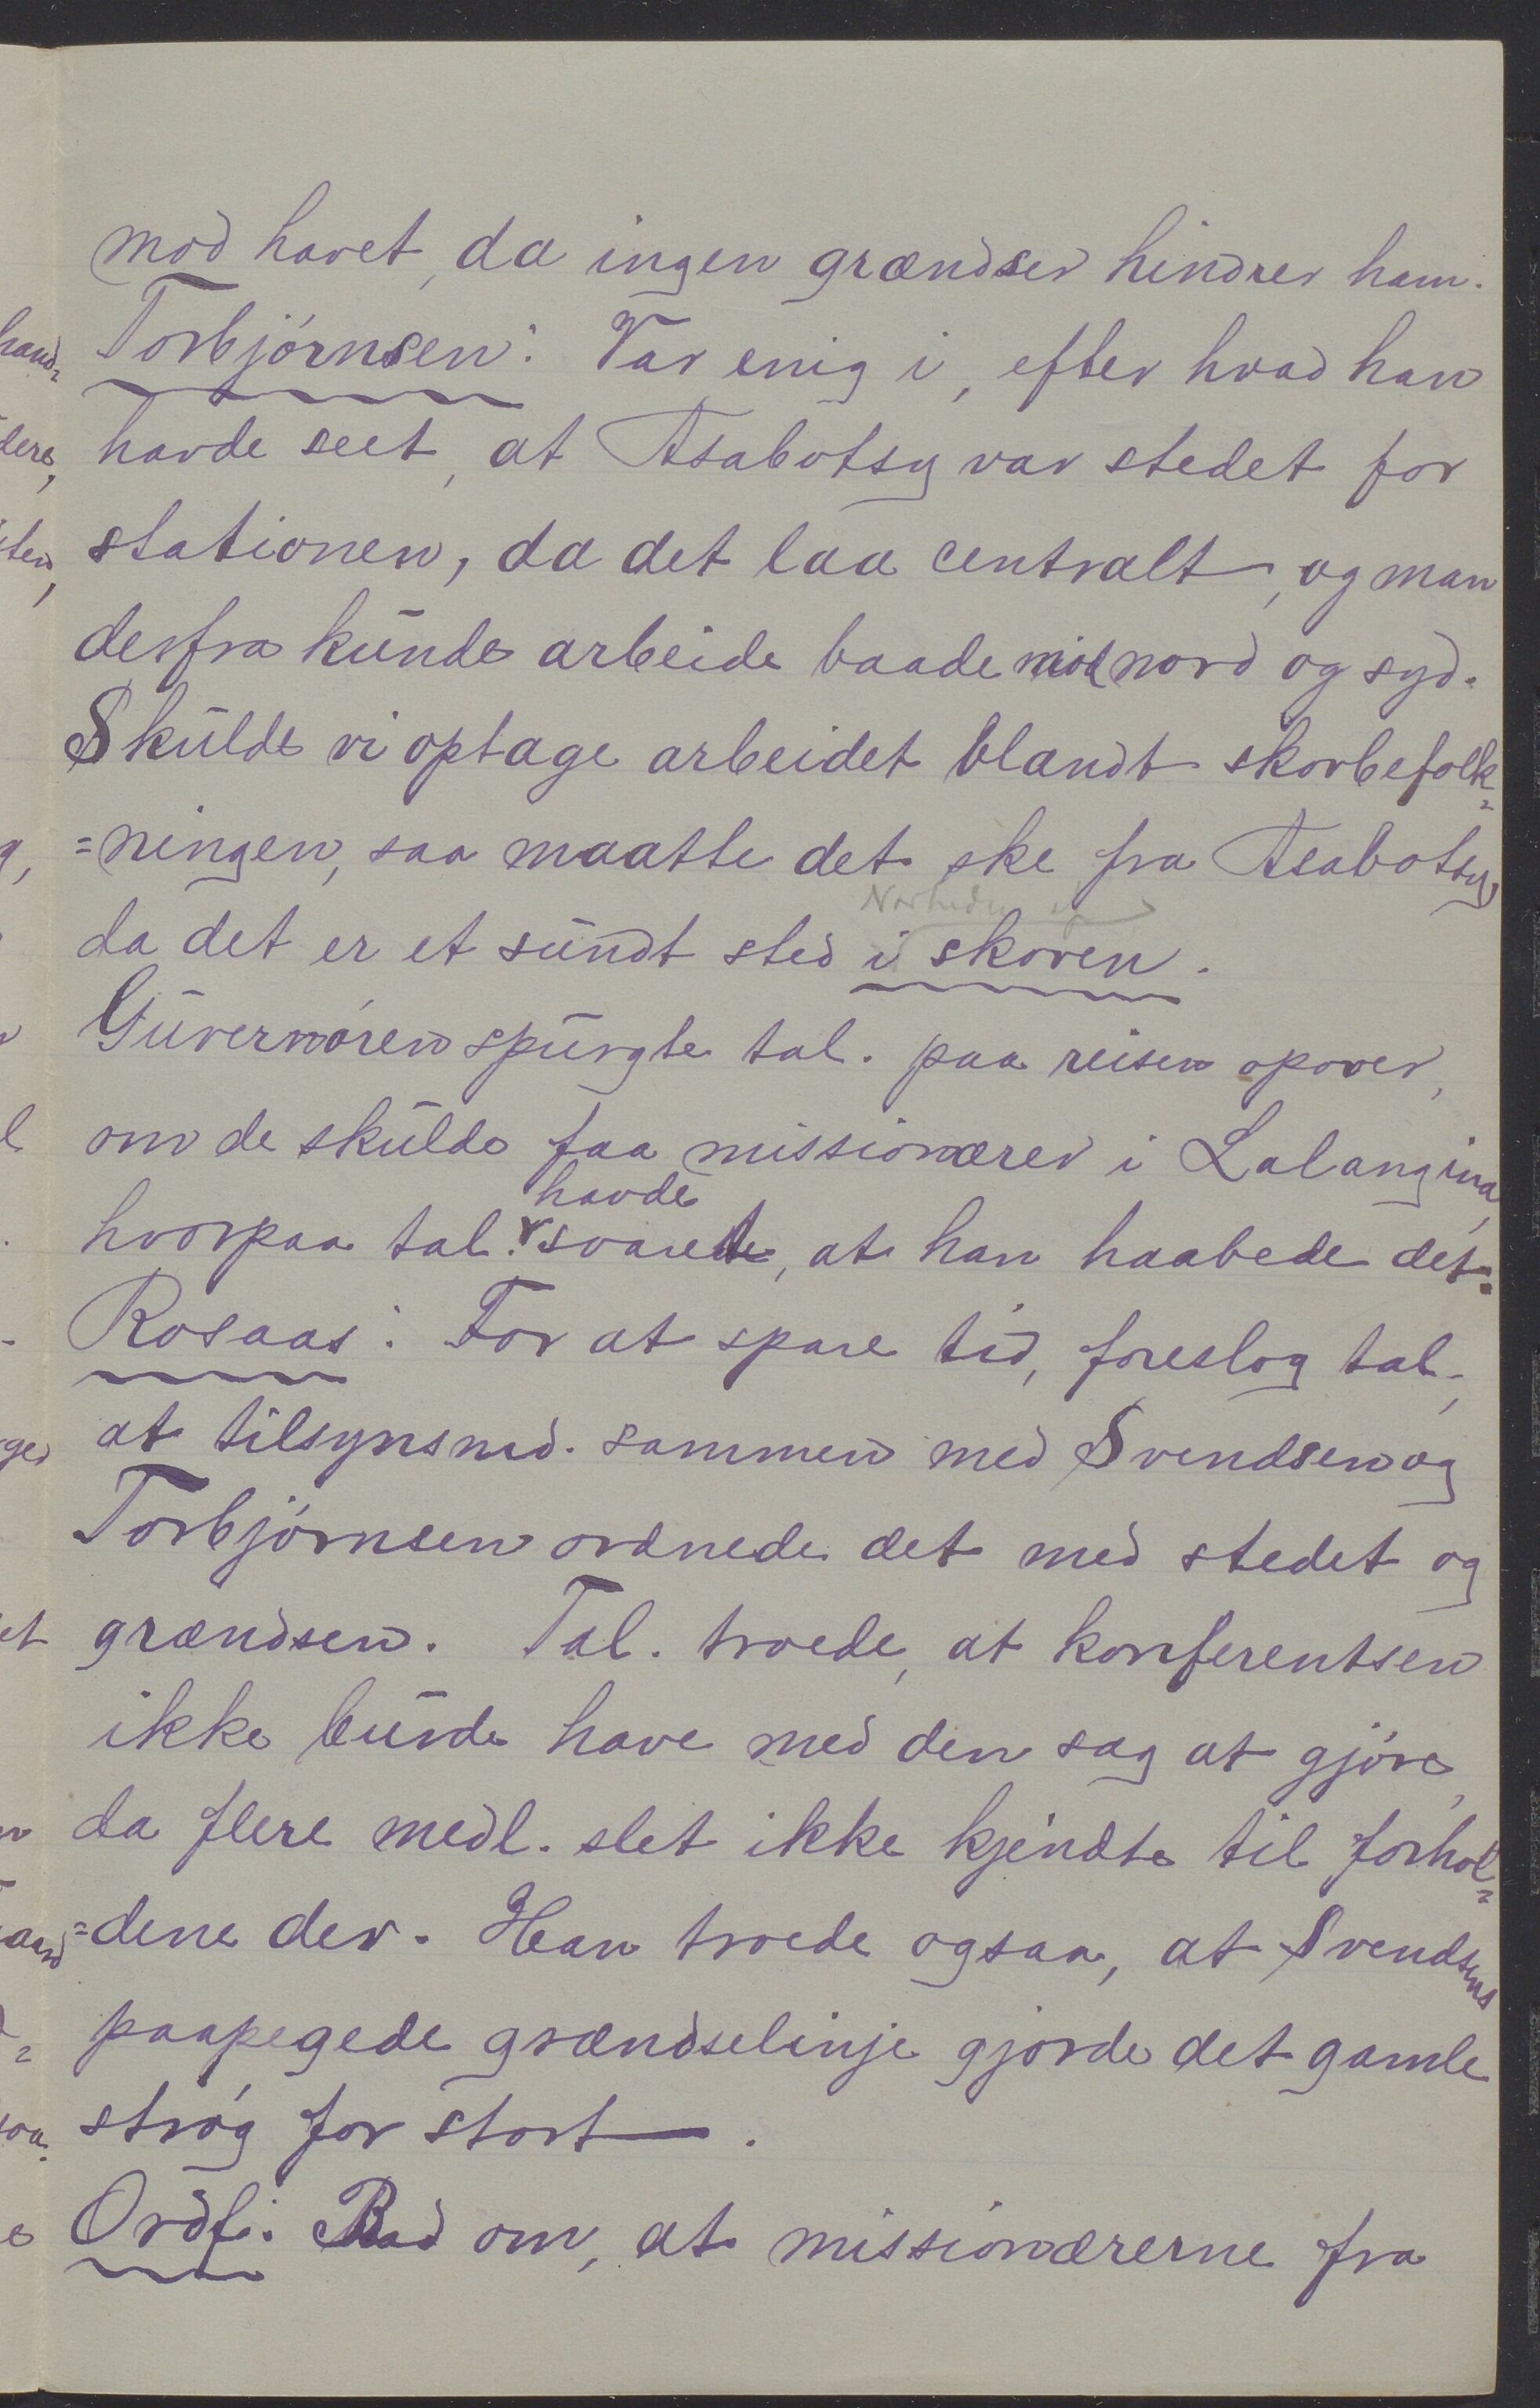 mod havet, da ingen grændser hindrer ham.
Torbjörnsen: Var enig i, efter hvad han
havde seet, at Asabotsy var stedet for
stationen, da det laa centralt, og man
derfra kunde arbeide baade mod nord og syd.
Skulde vi optage arbeidet blandt skovbefolk=
=ningen, saa maatte det ske fra Asabotsy,
Nærheden af
da det er et sundt sted i skoven.
Guvernören spurgte tal. paa reisen opover,
om de skulde faa missionærer i Lalangina,
havde
hvorpaa tal. svaret, at han haabede det.
Rosaas: For at spare tid, foreslog tal.,
at tilsynsmd. sammen med Svendsen og
Torbjörnsen ordnede det med stedet og
grændsen. Tal. troede, at konferentsen
ikke burde have med den sag at gjöre,
da flere medl. slet ikke kjendte til forhol=
=dene der. Han troede ogsaa, at Svendsens
paapegede grændselinje gjorde det gamle
strög for stort.
Ordf. Bad om, at missionærerne fra